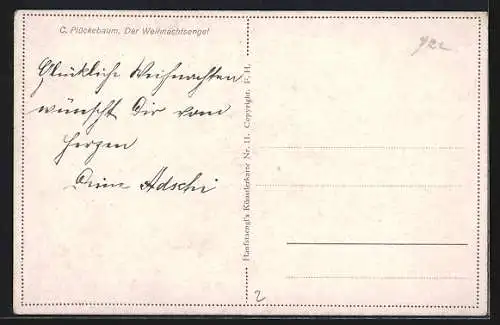 C. Plückebaum. Der Weihnachtsengel
Glückliche Weihnachten
wünscht Dir vom
Herzen
Deine Adschi
Hanfstaengl's Künstlerkarte Nr. 11. Copyright. F. H.
2